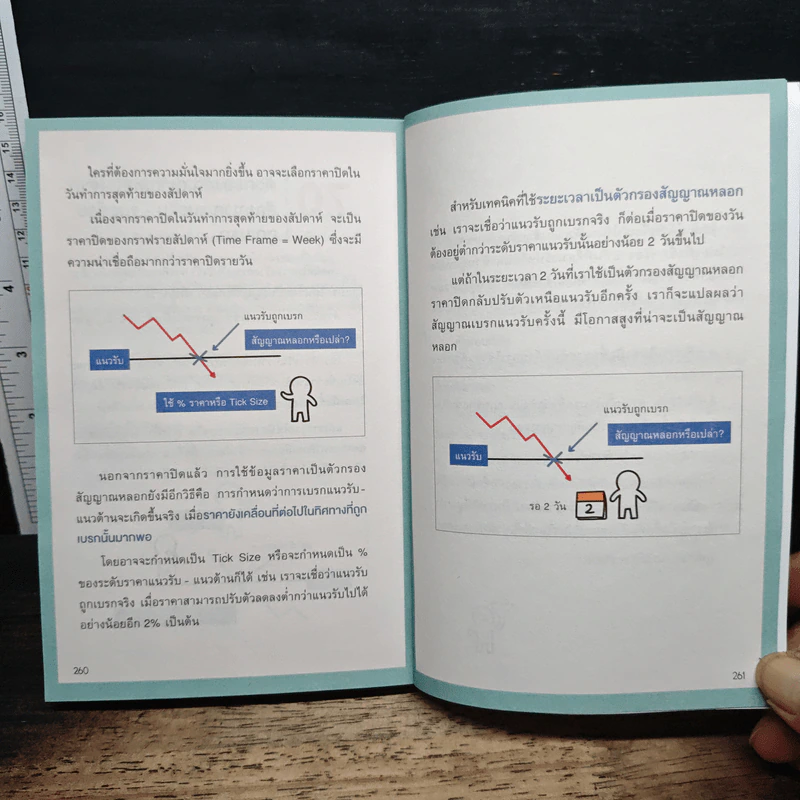 ใครที่ต้องการความมั่นใจมากยิ่งขึ้น อาจจะเลือกราคาปิดใน
วันทำการสุดท้ายของสัปดาห์
เนื่องจากราคาปิดในวันทำการสุดท้ายของสัปดาห์ จะเป็น
ราคาปิดของกราฟรายสัปดาห์ (Time Frame = Week) ซึ่งจะมี
ความน่าเชื่อถือมากกว่าราคาปิดรายวัน
แนวรับถูกเบรก
สัญญาณหลอกหรือเปล่า?
แนวรับ
ใช้ % ราคาหรือ Tick Size
นอกจากราคาปิดแล้ว การใช้ข้อมูลราคาเป็นตัวกรอง
สัญญาณหลอกยังมีอีกวิธีคือ การกำหนดว่าการเบรกแนวรับ -
แนวต้านจะเกิดขึ้นจริง เมื่อราคายังเคลื่อนที่ต่อไปในทิศทางที่ถูก
เบรกนั้นมากพอ
โดยอาจจะกำหนดเป็น Tick Size หรือจะกำหนดเป็น %
ของระดับราคาแนวรับ - แนวต้านก็ได้ เช่น เราจะเชื่อว่าแนวรับ
ถูกเบรกจริง เมื่อราคาสามารถปรับตัวลดลงต่ำกว่าแนวรับไปได้
อย่างน้อยอีก 2% เป็นต้น
260
สำหรับเทคนิคที่ใช้ระยะเวลาเป็นตัวกรองสัญญาณหลอก
เช่น เราจะเชื่อว่าแนวรับถูกเบรกจริง ก็ต่อเมื่อราคาปิดของวัน
ต้องอยู่ต่ำกว่าระดับราคาแนวรับนั้นอย่างน้อย 2 วันขึ้นไป
แต่ถ้าในระยะเวลา 2 วันที่เราใช้เป็นตัวกรองสัญญาณหลอก
ราคาปิดกลับปรับตัวเหนือแนวรับอีกครั้ง เราก็จะแปลผลว่า
สัญญาณเบรกแนวรับครั้งนี้ มีโอกาสสูงที่น่าจะเป็นสัญญาณ
หลอก
แนวรับถูกเบรก
สัญญาณหลอกหรือเปล่า?
แนวรับ
รอ 2 วัน
2
261
15
14
13
12
11
10
4
3
2